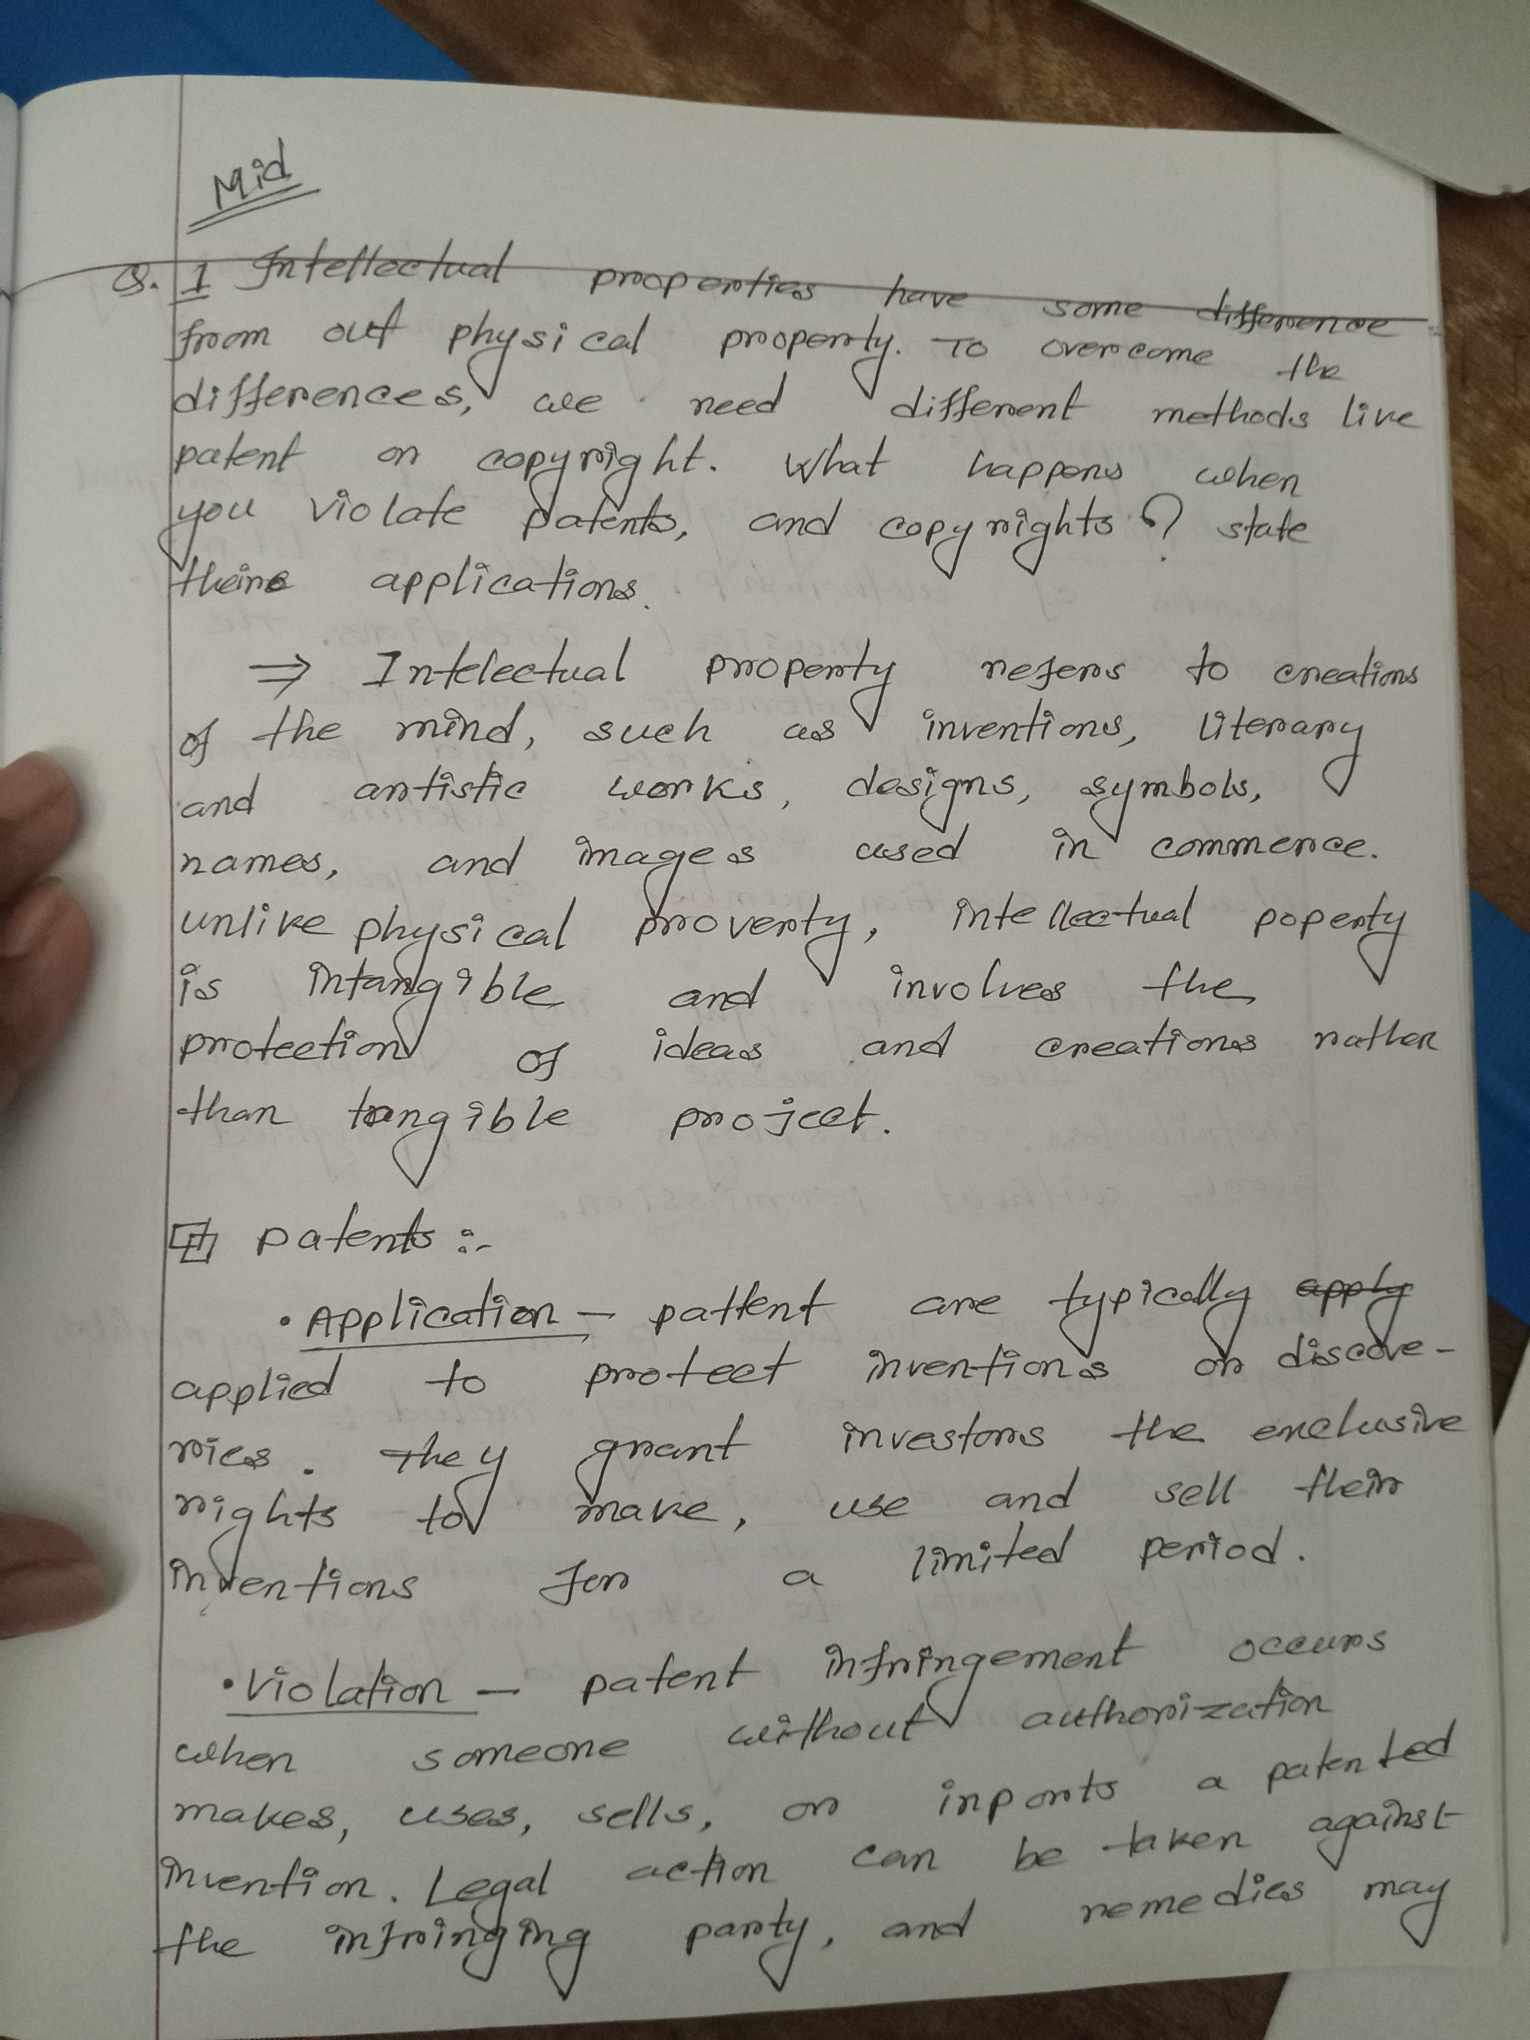 Mid
Q. 1 Intellectual properties have some difference
from out physical property. To overcome the
differences, we need different methods like
patent or copyright. What happens when
you violate patents, and copyrights? state
their applications.
⇒ Intelectual property refers to creations
of the mind, such as inventions, literary
and artistic works, designs, symbols,
names, and images used in commerce.
unlike physical proverty, intellectual poperty
is intangible and involves the
protection of ideas and creations rather
than tangible project.
patents :-
• Application – pattent are typically apply
applied to protect inventions or discove-
ries. they grant investors the exclusive
rights to make, use and sell their
inventions for a limited period.
• Violation – patent infringement occurs
when someone without authorization
makes, uses, sells, or inports a patented
invention. Legal action can be taken against
the infringing party, and remedies may